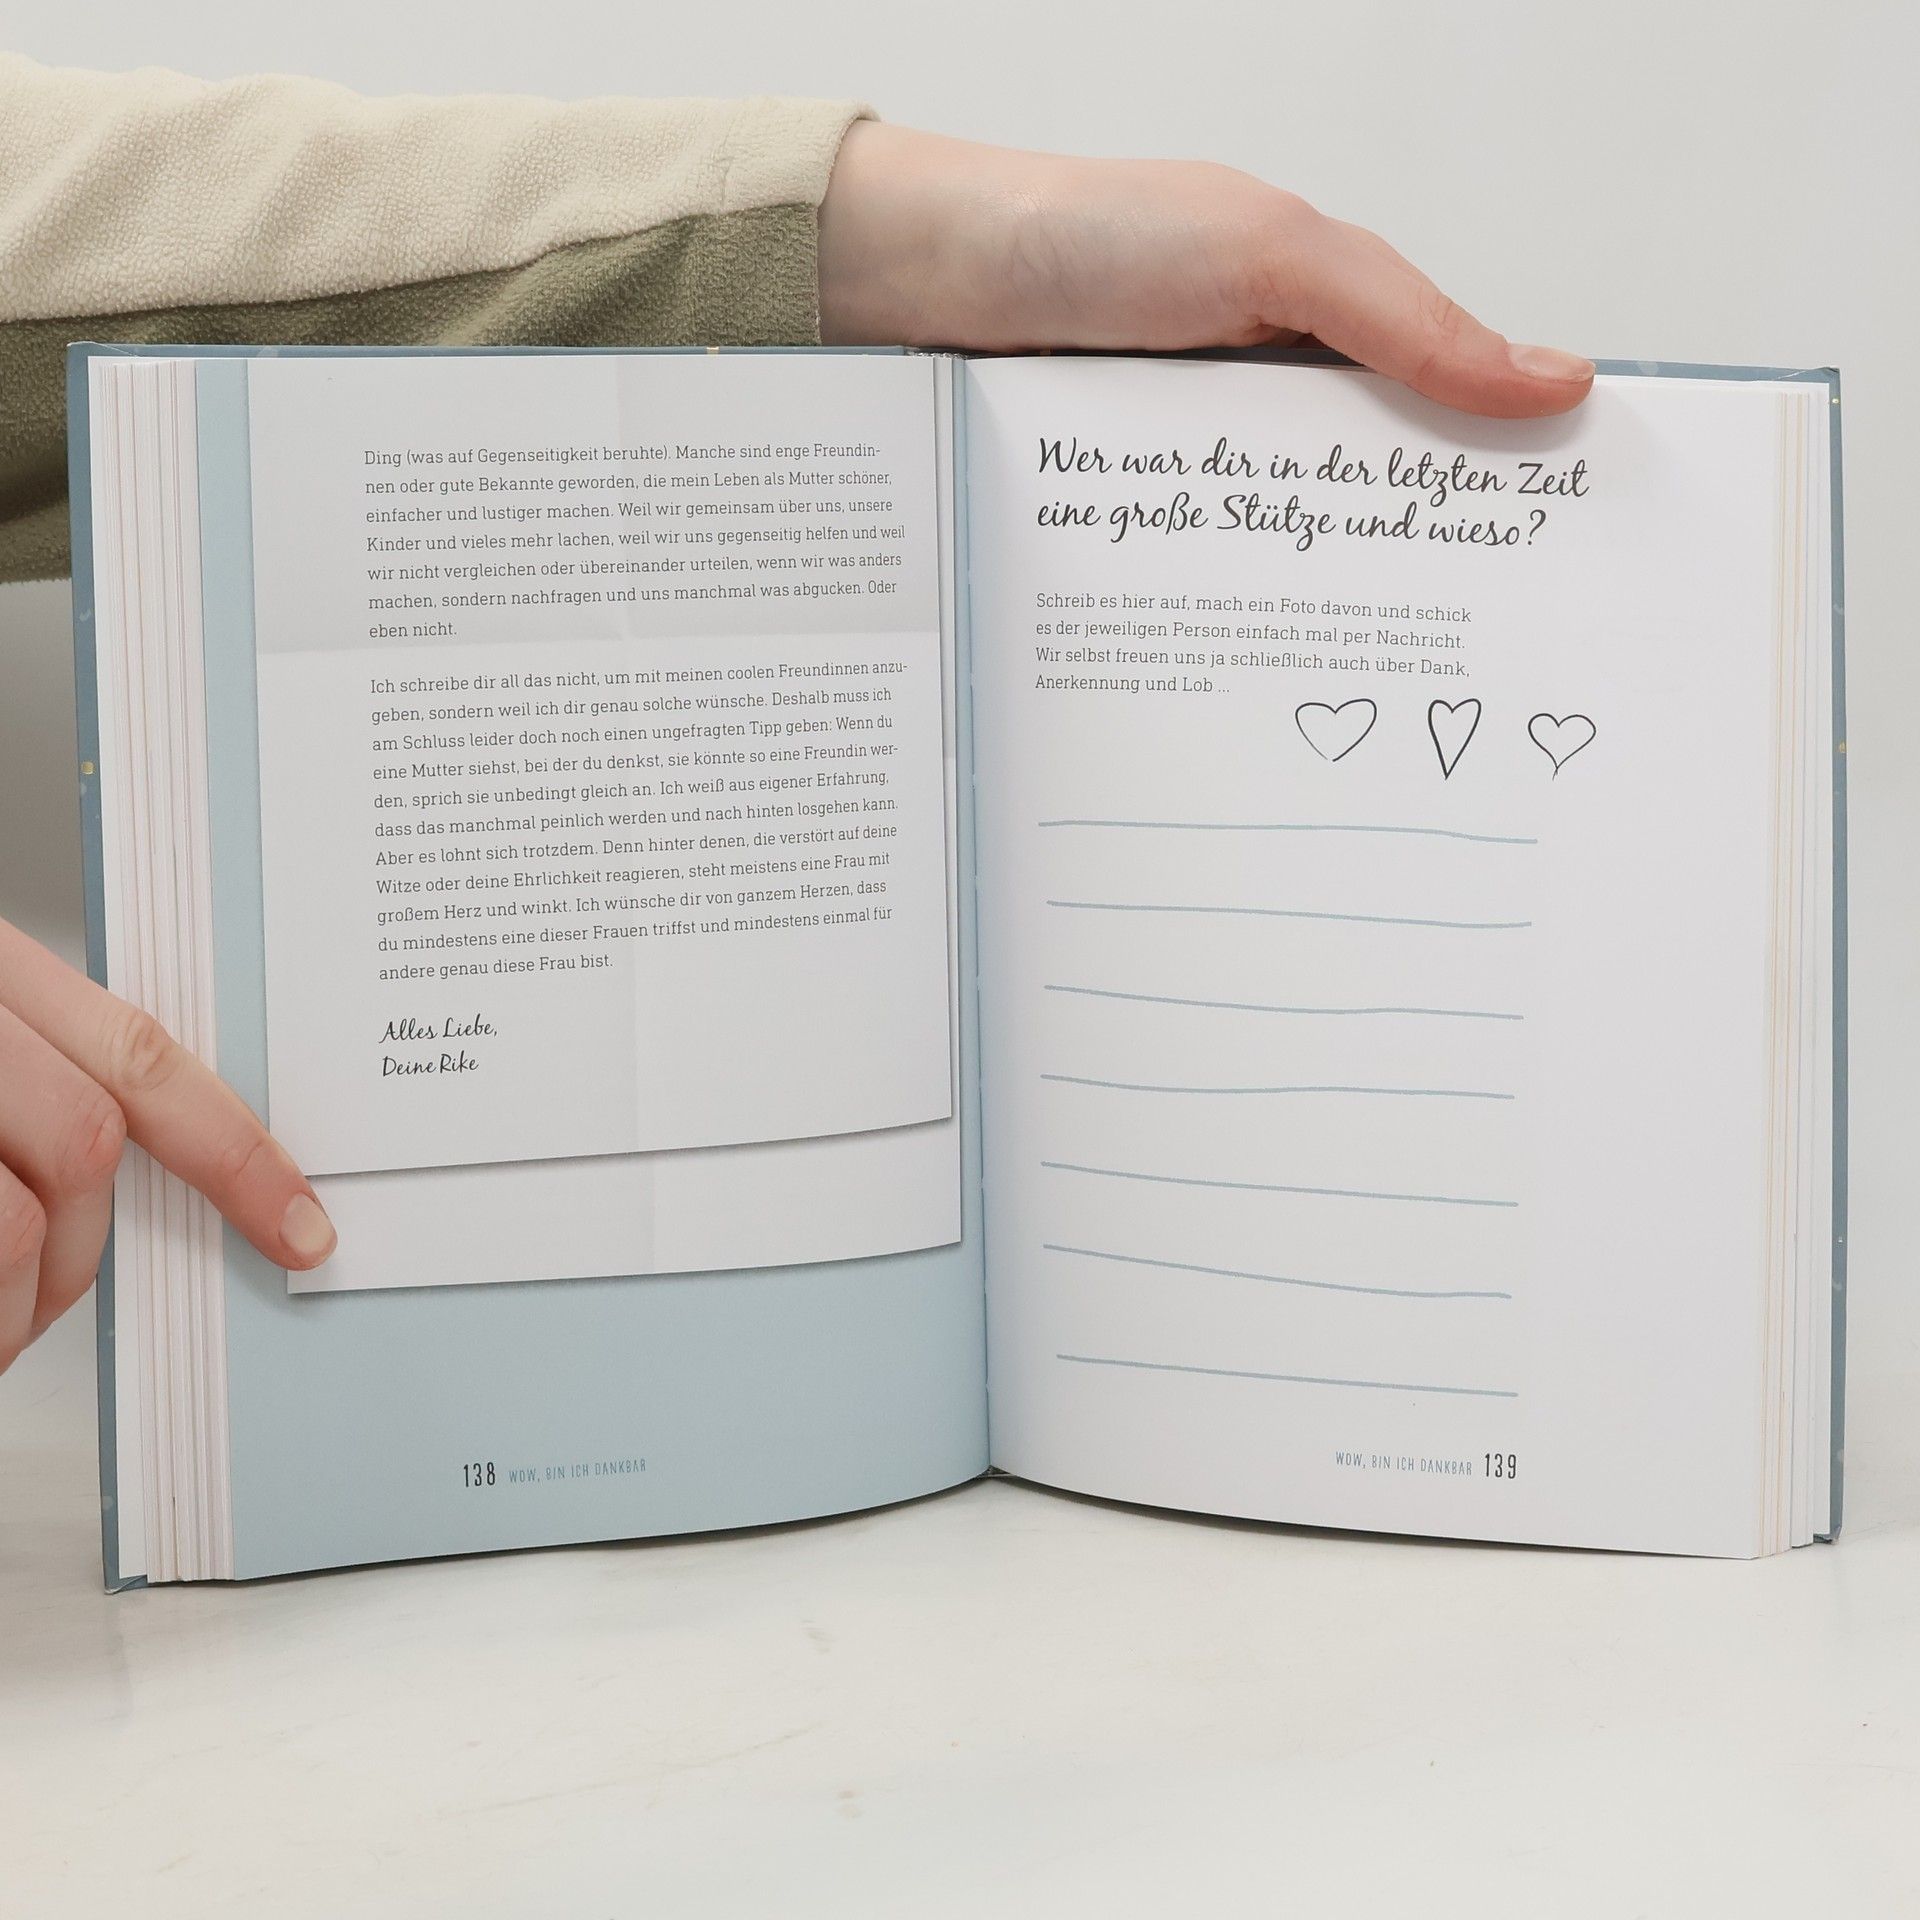 Ding (was auf Gegenseitigkeit beruhte). Manche sind enge Freundin-
nen oder gute Bekannte geworden, die mein Leben als Mutter schöner,
einfacher und lustiger machen. Weil wir gemeinsam über uns, unsere
Kinder und vieles mehr lachen, weil wir uns gegenseitig helfen und weil
wir nicht vergleichen oder übereinander urteilen, wenn wir was anders
machen, sondern nachfragen und uns manchmal was abgucken. Oder
eben nicht.
Ich schreibe dir all das nicht, um mit meinen coolen Freundinnen anzu-
geben, sondern weil ich dir genau solche wünsche. Deshalb muss ich
am Schluss leider doch noch einen ungefragten Tipp geben: Wenn du
eine Mutter siehst, bei der du denkst, sie könnte so eine Freundin wer-
den, sprich sie unbedingt gleich an. Ich weiß aus eigener Erfahrung,
dass das manchmal peinlich werden und nach hinten losgehen kann.
Aber es lohnt sich trotzdem. Denn hinter denen, die verstört auf deine
Witze oder deine Ehrlichkeit reagieren, steht meistens eine Frau mit
großem Herz und winkt. Ich wünsche dir von ganzem Herzen, dass
du mindestens eine dieser Frauen triffst und mindestens einmal für
andere genau diese Frau bist.
Alles Liebe,
Deine Rike
138 WOW, BIN ICH DANKBAR
Wer war dir in der letzten Zeit
eine große Stütze und wieso?
Schreib es hier auf, mach ein Foto davon und schick
es der jeweiligen Person einfach mal per Nachricht.
Wir selbst freuen uns ja schließlich auch über Dank,
Anerkennung und Lob ...
WOW, BIN ICH DANKBAR 139